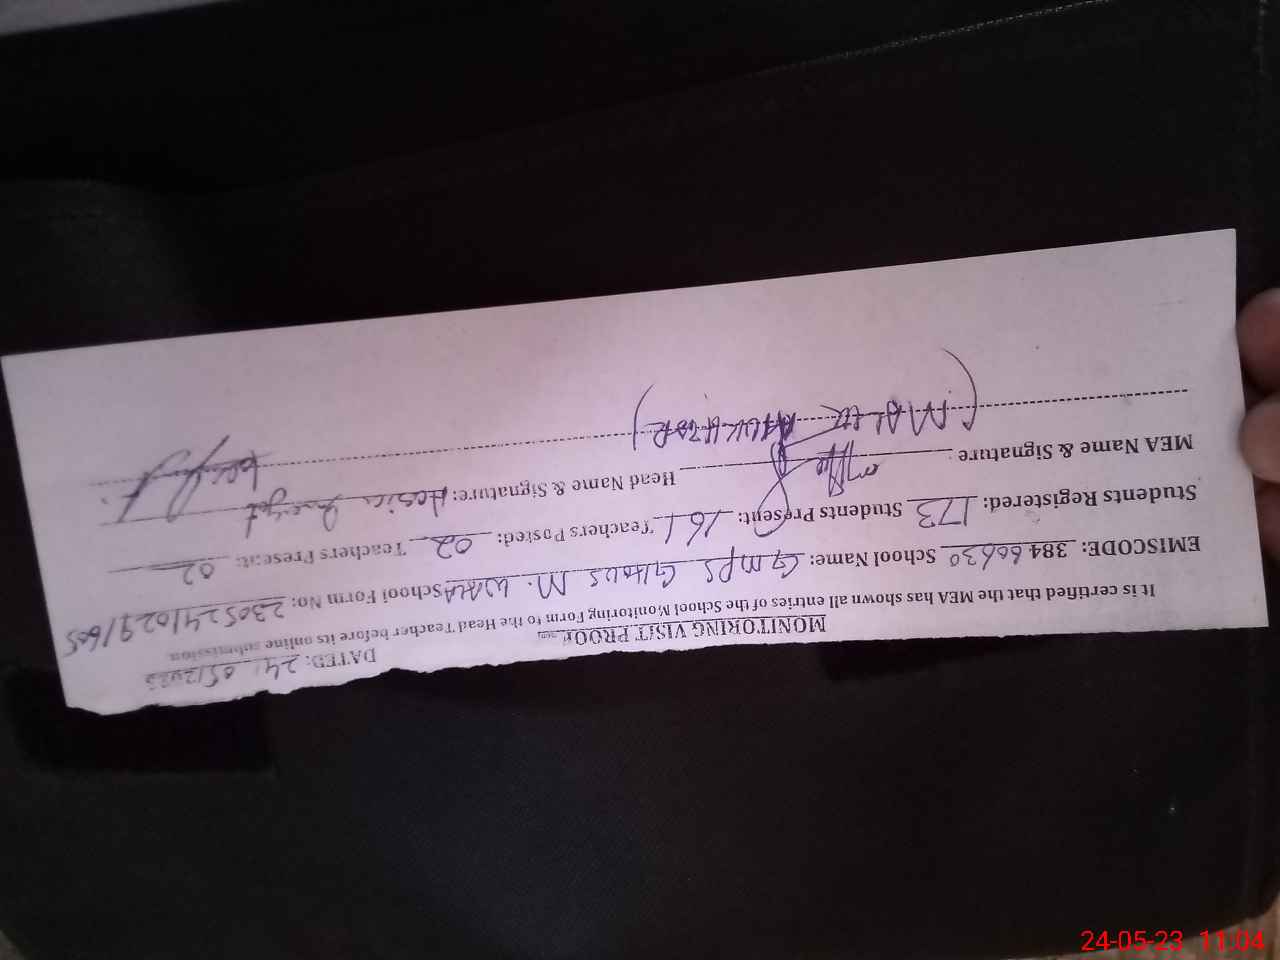 MONITORING VISIT PROOF
DATED: 24/05/2023
It is certified that the MEA has shown all entries of the School Monitoring Form to the Head Teacher before its online submission
EMISCODE: 384 60630 School Name: GMPS GHOUS M. WALA School Form No: 23052410291605
Students Registered: 173 Students Present: 161 Teachers Posted: 02 Teachers Present: 02
MEA Name & Signature: Head Name & Signature:
24-05-23 11:04